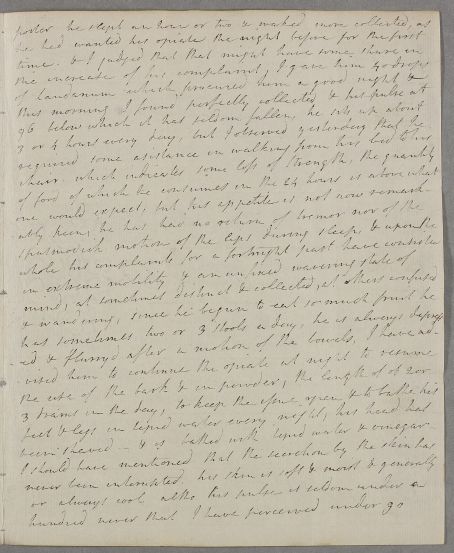 porter he slept an hour or two & waked more collected, as
he had wanted his opiate the night before for the first
time. & I judged that that might have some share in
the increase of his complaint, I gave him 40 drops
of laudanum which procured him a good night &
this morning I found perfectly collected & his pulse at
96 below which it has seldom fallen, he sits up about
3 or 4 hours every day, but I observed yesterday that he
required some asistance in walking from his bed to his
chair which indicates some loss of strength, the quantity
of food of which he consumes in the 24 hours is above what
one would expect, but his appetite is not now remark-
ably keen, he has had no return of tremor nor of the
spasmodick motion of the lips during sleep, & upon the
whole his complaints for a fortnight past have consisted
in extreme mobility & an unfixed wavering state of
mind, at sometimes distinct & collected, at others confused
& wandering, since he begun to eat so much fruit he
has sometimes two or 3 stools a day, he is always depress
-ed & flurry'd after a motion of the bowels, I have ad-
vised him to continue the opiate at night to resume
the use of the bark & in powder, the length of of 2 or
3 drams in the day, to keep the open & to bathe his
feet & legs in tepid water every night, his head has
been shaved - & is bathed with tepid water & vinegar-
I should have mentioned that the secretion by the skin has
never been interrupted, his skin is soft & moist & generally
or always cool altho his pulse is seldom under a
hundred never that I have perceived under 90